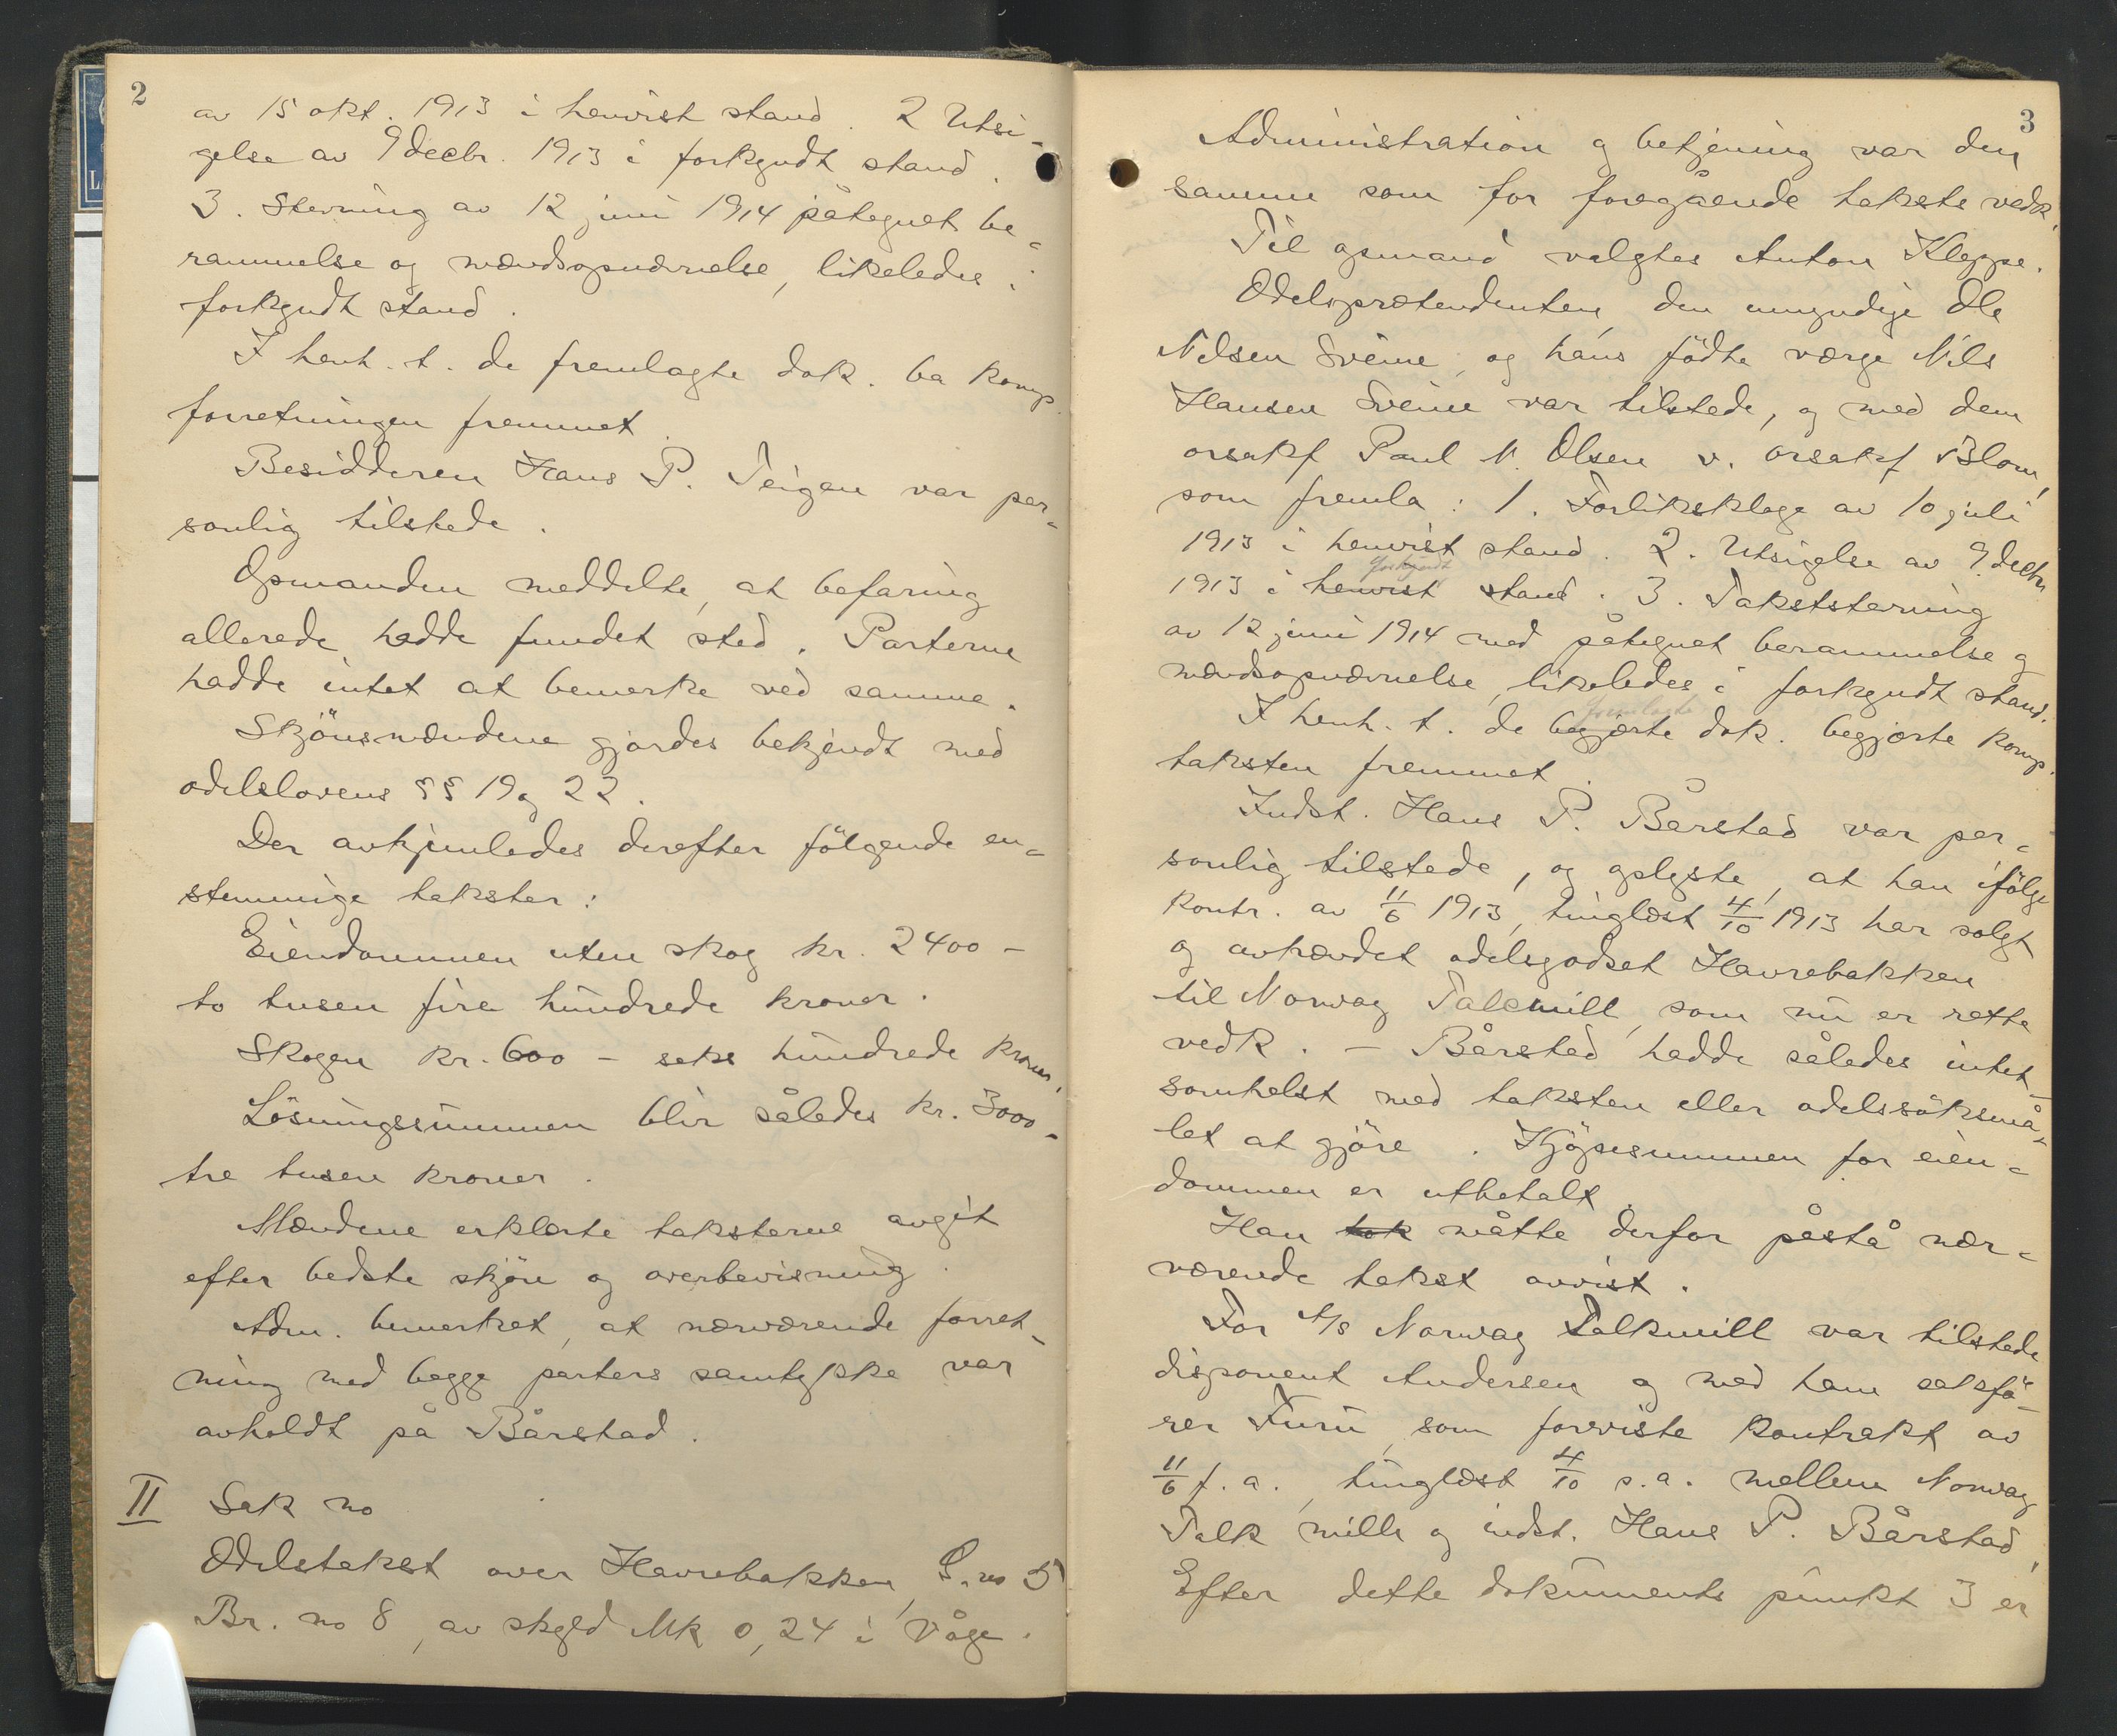 2
av 15 okt. 1913 i henvist stand. 2 Utsi-
gelse av 9 decbr. 1913 i forkyndt stand.
3. Stevning av 12 juni 1914 påtegnet be-
rammelse og mændsopnævnelse, likeledes i
forkyndt stand.
I henh. t. de fremlagte dok. ba komp.
forretningen fremmet.
Besidderen Hans P. Teigen var per-
sonlig tilstede.
Opmanden meddelte, at befaring
allerede hadde fundet sted. Parterne
hadde intet at bemerke ved samme.
Skjönsmændene gjordes bekjendt med
odelslovens §§ 19 og 22.
Der avhjemledes derefter fölgende en-
stemmige takster:
Eiendommen uten skog kr. 2400 -
to tusen fire hundrede kroner.
Skogen kr. 600 - seks hundrede kroner.
Lösningssummen blir således kr. 3000 -
tre tusen kroner.
Mændene erklærte taksterne avgit
efter bedste skjön og overbevisning.
Adm. bemerket, at nærværende forret-
ning med begge parters samtykke var
avholdt på Bårstad.
II Sak no
Odelstakst over Havrebakken, G. no 5
Br. no 8, av skyld Mk 0,24 i Våge.
3
Administration og betjening var den
samme som for foregående taksts vedk.
Til opmand valgtes Anton Kleppe.
Odelsprætendenten, den umyndige Ole
Nilsen Sveine, og hans födte værge Nils
Hansen Sveine var tilstede, og med dem
orsakf Paul N. Olsen v. orsakf Blom,
som fremla: 1. Forliksklage av 10 juli
1913 i henvist stand. 2. Utsigelse av 9 decbr
forkyndt
1913 i henvist stand. 3. Takststevning
av 12 juni 1914 med påtegnet berammelse og
mændsopnævnelse, likeledes i forkyndt stand.
fremlagte
I henh. t. de begjærte dok. begjærte komp.
taksten fremmet.
Indst. Hans P. Bårstad var per-
sonlig tilstede, og oplyste, at han ifölge
kontr. av 11/6 1913, tinglæst 4/10 1913 har solgt
og avhændet odelsgodset Havrebakken
til Norwag Talcmill, som nu er rette
vedk. - Bårstad hadde således intet-
somhelst med taksten eller odelssöksmå-
let at gjöre. Kjöpesummen for eien-
dommen er utbetalt.
Han tok måtte derfor påstå nær-
værende takst avvist.
For A/S Norwag Talkmill var tilstede
disponent Andersen og med ham sakfö-
rer Furu, som foreviste kontrakt av
11/6 f. a., tinglæst 4/10 s. a. mellem Norwag
Talk mills og indst. Hans P. Bårstad.
Efter dette dokuments punkt 3 er